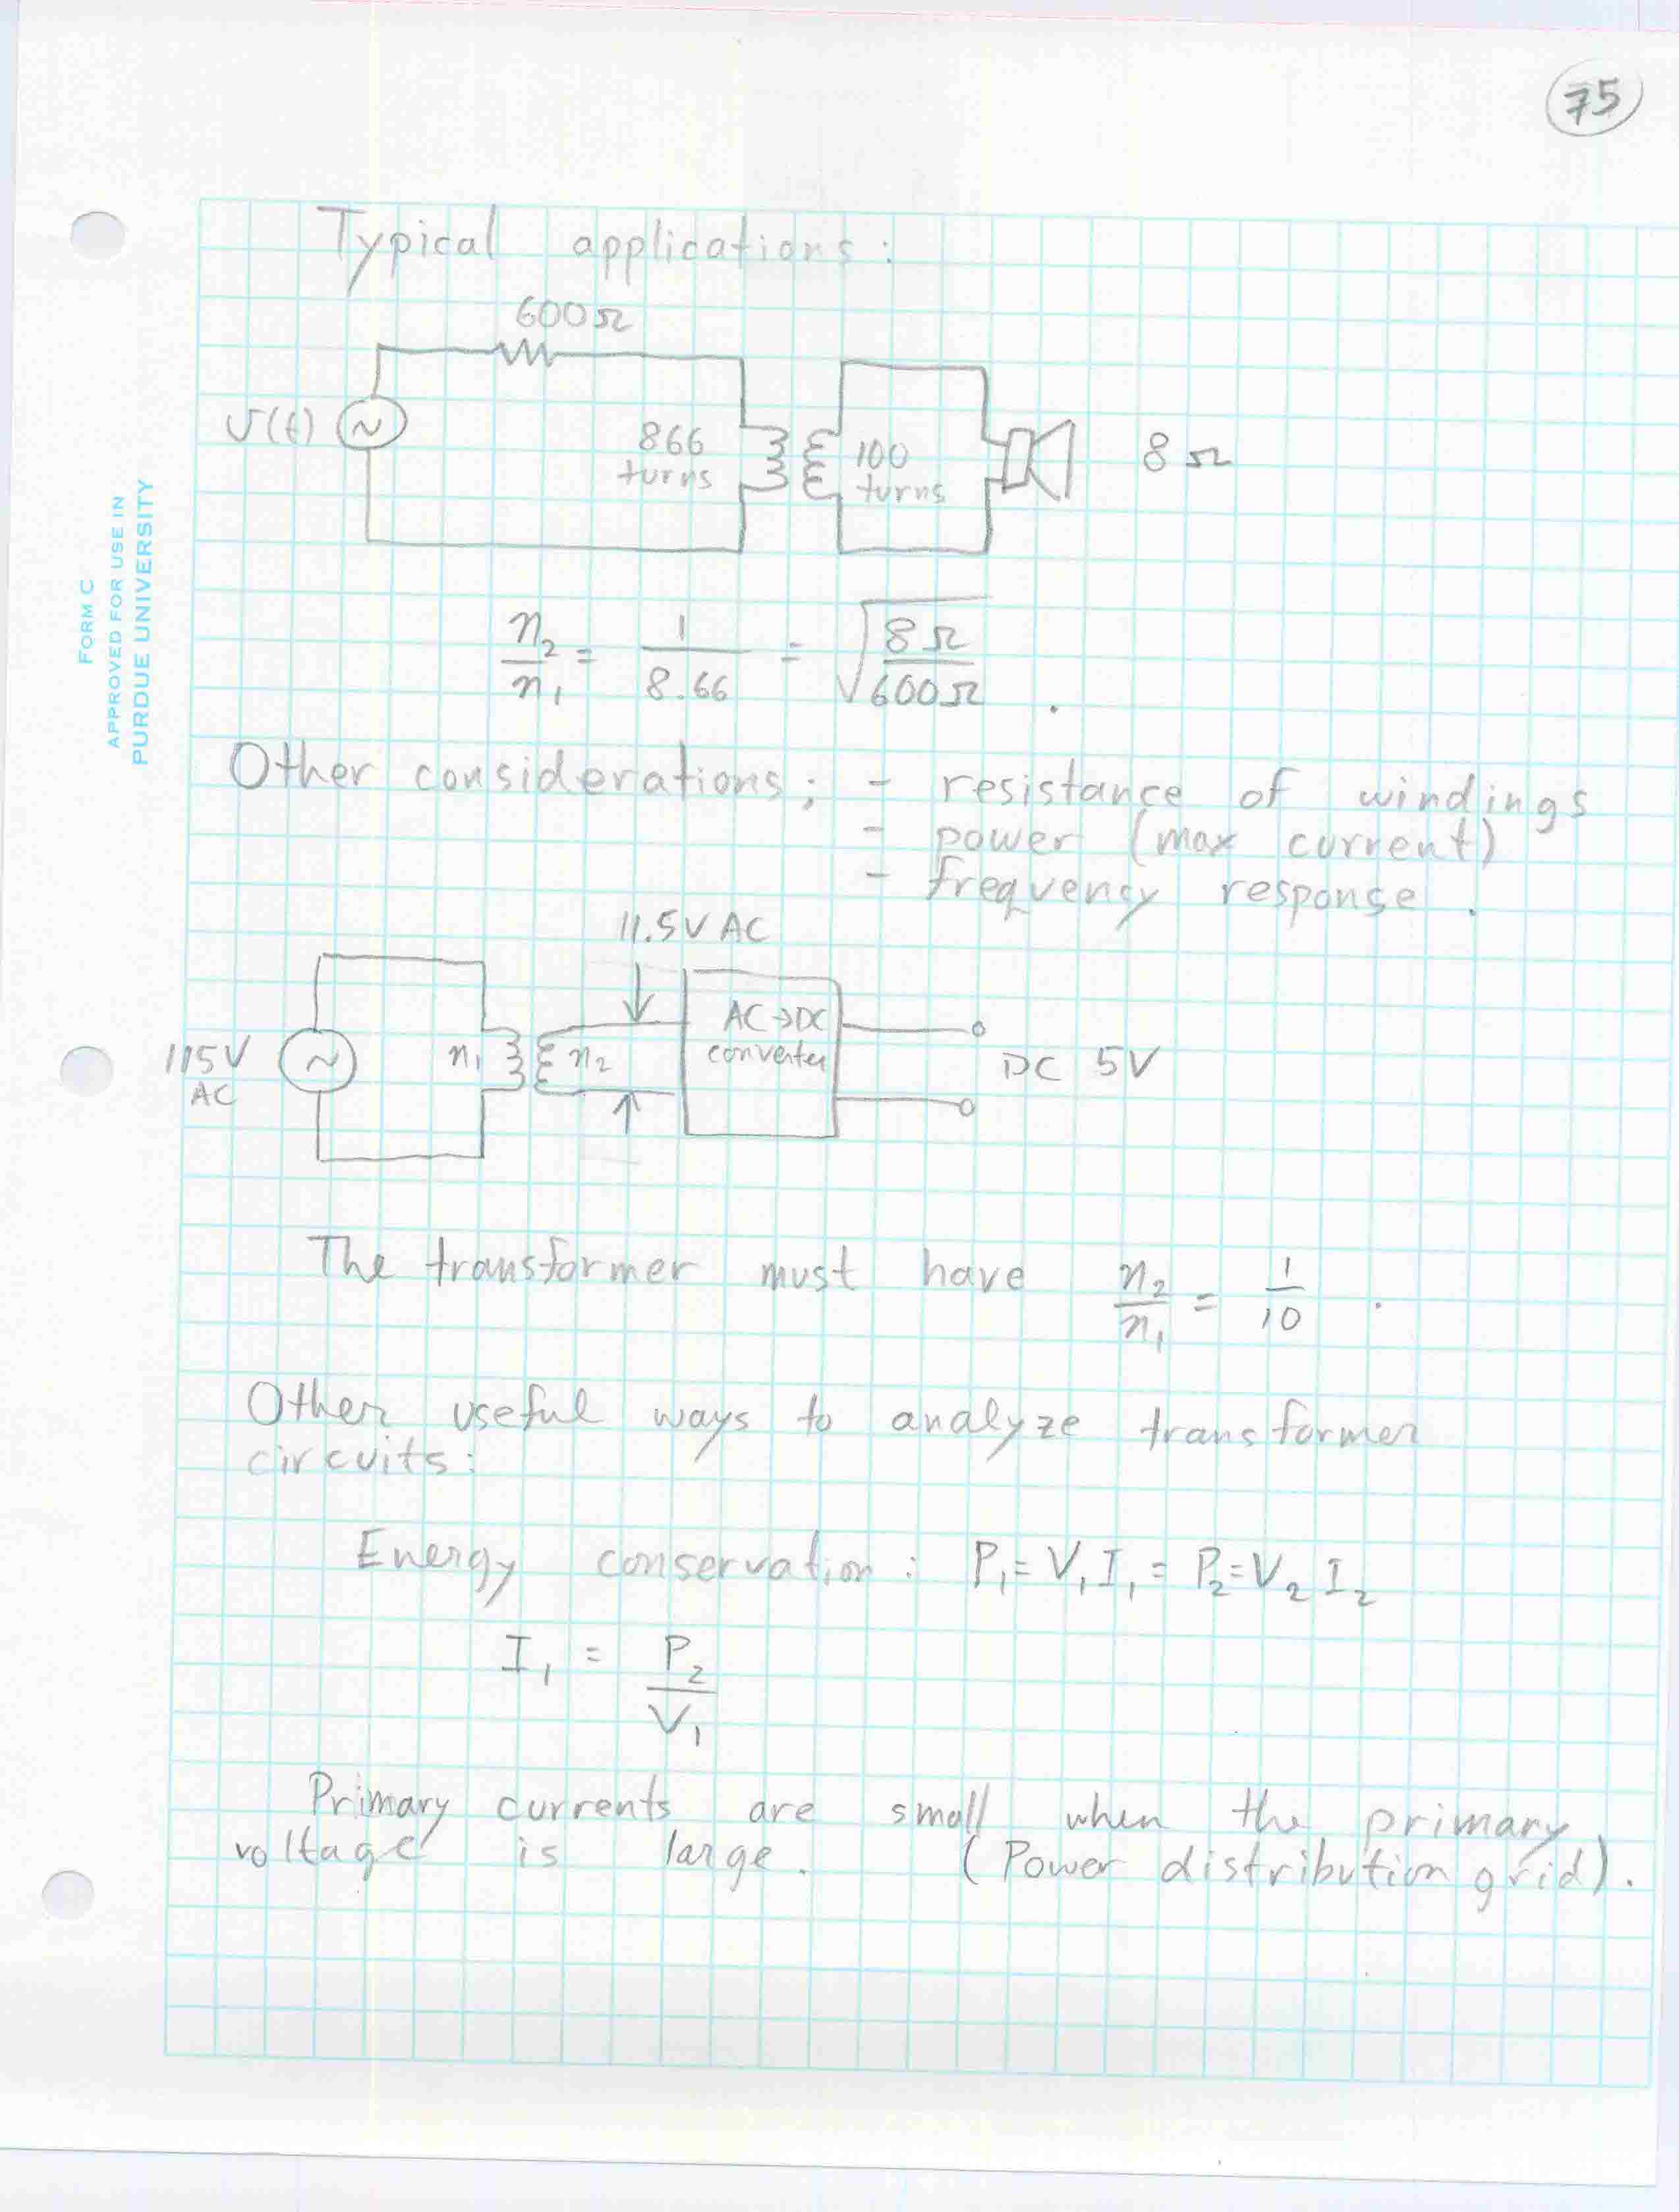 75
Typical applications:
600Ω
v(t)
866
turns
100
turns
8 Ω
n₂/n₁ = 1/8.66 = √(8Ω/600Ω) .
Other considerations; - resistance of windings
- power (max current)
- frequency response.
11.5V AC
115V
AC
n₁
n₂
AC→DC
converter
DC 5V
The transformer must have n₂/n₁ = 1/10 .
Other useful ways to analyze transformer
circuits:
Energy conservation: P₁=V₁I₁ = P₂=V₂I₂
I₁ = P₂/V₁
Primary currents are small when the primary
voltage is large. (Power distribution grid).
FORM C
APPROVED FOR USE IN
PURDUE UNIVERSITY